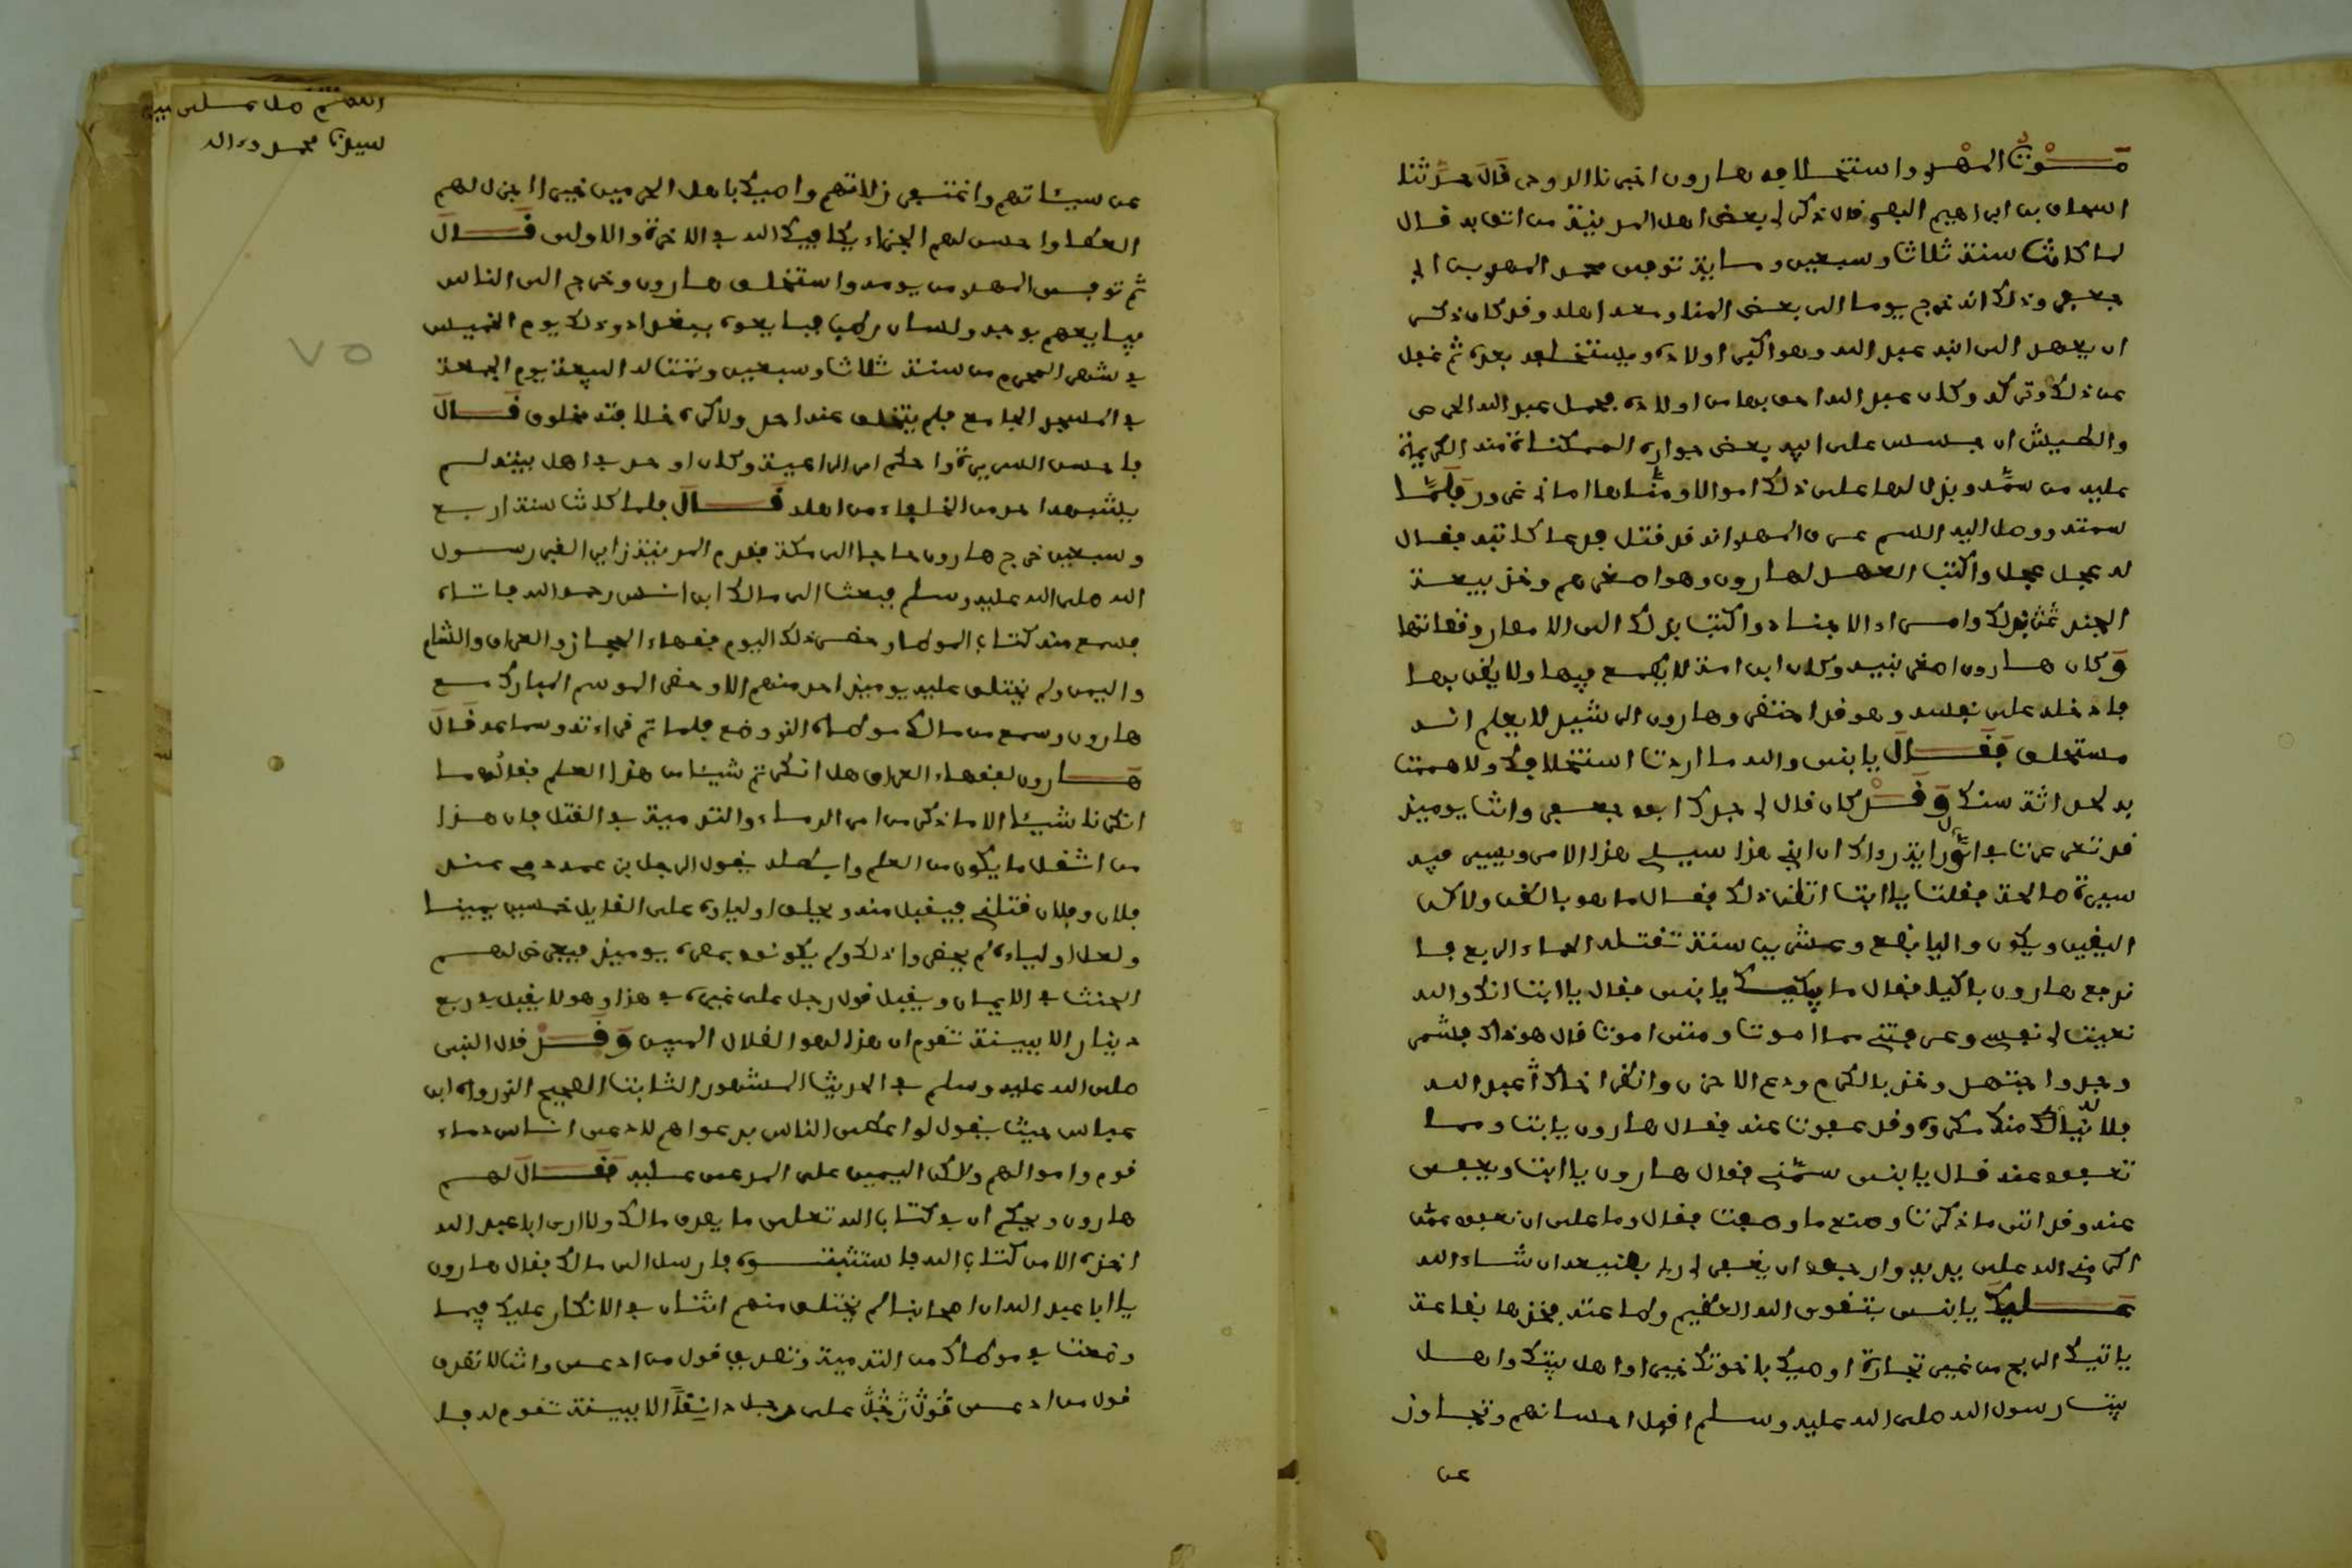 مَوْتُ المهْدِ واستخلافه هارون اخبرنا الدوحى قال حدثنا
اسحاق بن ابراهيم قال ذكر لى بعض اهل المدينة من اثق به قال
لما كانت سنة ثلاثا وسبعين ومايه توفى محمد المهدى بن ابى
جعفر وذلك انه خرج يوما الى بعض المنا ومعه اهله وقد كان ذكر
ان يعهد الى ابنه عبد الله وهو اكبر اولاده ويستخلفه بعده ثم غفل
عن ذلك وتركه وكان عبد الله احق بها من اولاده فحمل عبد الله الحرص
والطيش ان دسس على ابيه بعض جواره المتمكناة منه الكريمة
عليه من سمه وبذل لها على ذلك اموالا ومناها امانى غرور فلما
سمته ووصل اليه السم عرف المهدى انه قد قتل فدعا كاتبه فقال
له عجل عجل واكتب العهد لهارون وهو اصغرهم وخذ بيعة
الجند ثم بذلك وامراء الاجناد واكتب بذلك الى الامصار وقضاتها
وكان هارون اصغر بنيه وكان ابن امة لا يطمع فيها ولا يظن بها
فادخله على نفسه وهو قد احتضر وهارون الرشيد لا يعلم انه
مستخلف فقال يا بنى والله ما اردت استخلافك ولا هممت
به لحداثة سنك وقد كان قال لى جدك ابو جعفر وانت يوميذ
قد ترعرعت فى اول رايه رءاك ان ابنى هذا سيلى هذا الامر ويسير فيه
سيرة صالحة فقلت يا ابت اتظن ذلك فقال ما هو بالظن ولاكن
اليقين ويكون واليا بضع وعشرين سنة تقتله الحماء الربع فا
ندفع هارون باكيا فقال ما يبكيك يا بنى فقال يا ابت انك والله
نعيت لى نفسى وعرفتنى مما اموت ومتى اموت قال هو ذاك فشمر
وجد واجتهد وخذ بالكرم ودع الاحن وانظر اخاك عبد الله
فلا يناله منك مكروه وقد عفوت عنه فقال هارون يا ابت ومما
تعفوا عنه قال يا بنى سمنى فقال هارون يا ابت ويعفى
عنه وقد اتى ما ذكرت وصنع ما وصفت فقال وما على ان نعفو عمن
اكرمنى الله على يديه وارجوا ان يغفر لى ربى بصنيعه ان شاء الله
عليك يا بنى بتقوى الله العظيم وطاعته فخذها بضاعة
ياتيك الربح من غير تجارة اوصيك باخوتك خيرا واهل بيتك واهل
بيت رسول الله صلى الله عليه وسلم اقبل احسانهم وتجاوز
عن
اللهم صل على نبينا
سيدنا محمد وءاله
٧٥
عن سيئاتهم واغتفر زلاتهم واوصيك باهل الحرمين خيرا اجزل لهم
العطا واحسن لهم الجزاء يكافيك الله فى الاخرة والاولى قال
ثم توفى المهدى من يومه واستخلف هارون وخرج الى الناس
فبايعهم بوجه ولسان رطب فبايعوه ببغداد وذلك يوم الخميس
فى شهر المحرم من سنة ثلاثا وسبعين وتمت له البيعة يوم الجمعة
فى المسجد الجامع فلم يتخلف عنه احد ولا كره خلافته مخلوق قال
فاحسن السيرة واحكم امر الراعية وكان اوحد فى اهل بيته لم
يشبهه احد من الخلفاء من اهله قال فلما كانت سنة اربع
وسبعين خرج هارون حاجا الى مكة فقدم المدينة زاير القبر رسول
الله صلى الله عليه وسلم فبعث الى مالك ابن انس رحمه الله فاتاه
فسمع منه كتاب الموطا وحضر ذلك اليوم فقهاء الحجاز والعراق والشام
واليمن ولم يتخلف عليه يوميذ احد منهم الا وحضر الموسم المبارك مع
هارون وسمع من مالك موطاه الذى وضع فلما تم قراءته وسماعه قال
هارون لفقهاء العراق هل انكرتم شيئا من هذا العلم فقالوا ما
انكرنا شيئا الا ما ذكر من امر الدماء والتدمية فى القتل فان هذا
من اثقل ما يكون من العلم وابطله يقول الرجل بن عمه دمى عند
فلان وفلان قتلنى فيقبل منه ويحلف اولياوه على القايل خمسين يمينا
ولعل اولياءه لم يحضروا ذلك ولم يكونوا بمصره يوميذ فيعرض لهم
الحنث فى الايمان ويقبل قول رجل على غيره فى هذا وهو لا يقبل فى ربع
دينار الا ببينة تقوم ان هذا لهو الضلال المبين وقد قال النبى
صلى الله عليه وسلم فى الحديث المشهور الثابت الصحيح الذى رواه ابن
عباس حيث يقول لو اعطى الناس بدعواهم لادعى اناس دماء
قوم واموالهم ولاكن اليمين على المدعى عليه فقال لهم
هارون ويحكم ان فى كتاب الله تعلى ما يصدق مالك ولا ارى ابا عبد الله
اخذه الا من كتاب الله فاستثبتوه فارسل الى مالك فقال هارون
يا ابا عبد الله ان اصحابنا لم يختلف منهم اثنان فى الانكار عليك فيما
وضعت فى موطاك من التدمية وتصديق قول من ادعى وانت لا تصدق
قول من ادعى قول رجل على رجل دانقا الا ببينة تقوم له فا